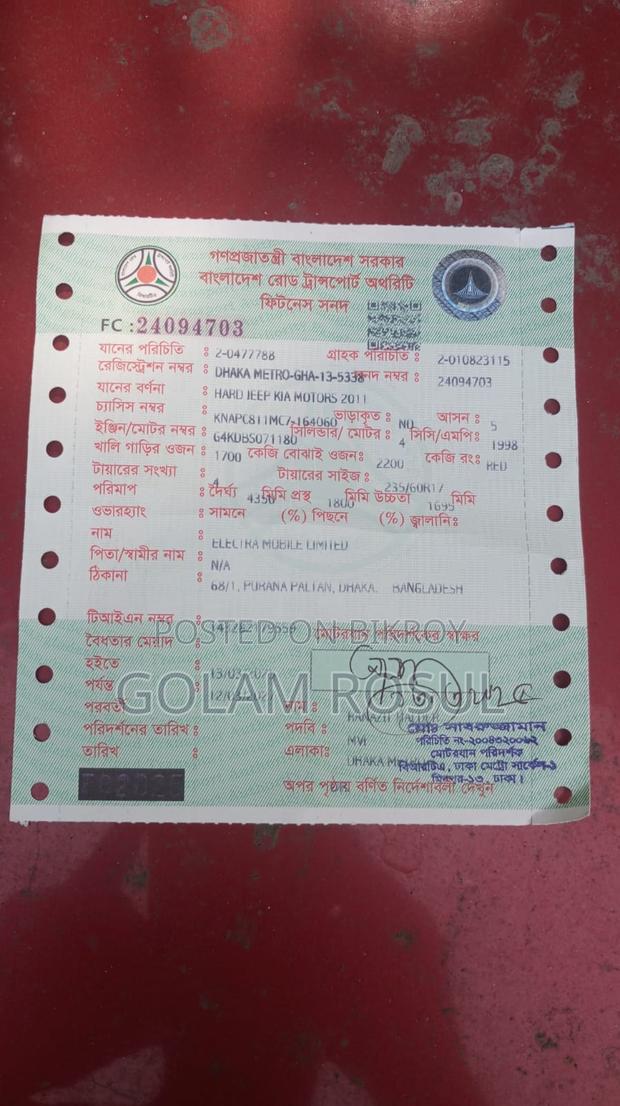 গণপ্রজাতন্ত্রী বাংলাদেশ সরকার
বাংলাদেশ রোড ট্রান্সপোর্ট অথরিটি
ফিটনেস সনদ
FC : 24094703
যানের পরিচিতি : 2-0477788 গ্রাহক পরিচিতি : 2-010823115
রেজিস্ট্রেশন নম্বর : DHAKA METRO-GHA-13-5338 সনদ নম্বর : 24094703
যানের বর্ণনা : HARD JEEP KIA MOTORS 2011
চ্যাসিস নম্বর : KNAPC811MC7-164060 ভাড়াকৃত : NO আসন : 5
ইঞ্জিন/মোটর নম্বর : G4KDBS071180 সিলিন্ডার/ মোটর : 4 সিসি/এমপি: 1998
খালি গাড়ির ওজন : 1700 কেজি বোঝাই ওজন: 2200 কেজি রং: RED
টায়ারের সংখ্যা : 4 টায়ারের সাইজ : 235/60R17
পরিমাপ : দৈর্ঘ্য 4350 মিমি প্রস্থ 1800 মিমি উচ্চতা 1695 মিমি
ওভারহ্যাং : সামনে (%) পিছনে (%) জ্বালানি:
নাম : ELECTRA MOBILE LIMITED
পিতা/স্বামীর নাম : N/A
ঠিকানা : 68/1, PURANA PALTAN, DHAKA. BANGLADESH
টিআইএন নম্বর : মোটরযান পরিদর্শকের স্বাক্ষর
POSTED ON BIKROY
বৈধতার মেয়াদ :
হইতে :
পর্যন্ত :
GOLAM RASUL
পরবর্তী নাম :
পরিদর্শনের তারিখ : পদবি : MVI
তারিখ : এলাকা: DHAKA
মোটরযান পরিদর্শক
বিআরটিএ, ঢাকা মেট্রো সার্কেল-১
মিরপুর-১৩, ঢাকা।
অপর পৃষ্ঠায় বর্ণিত নির্দেশাবলী দেখুন